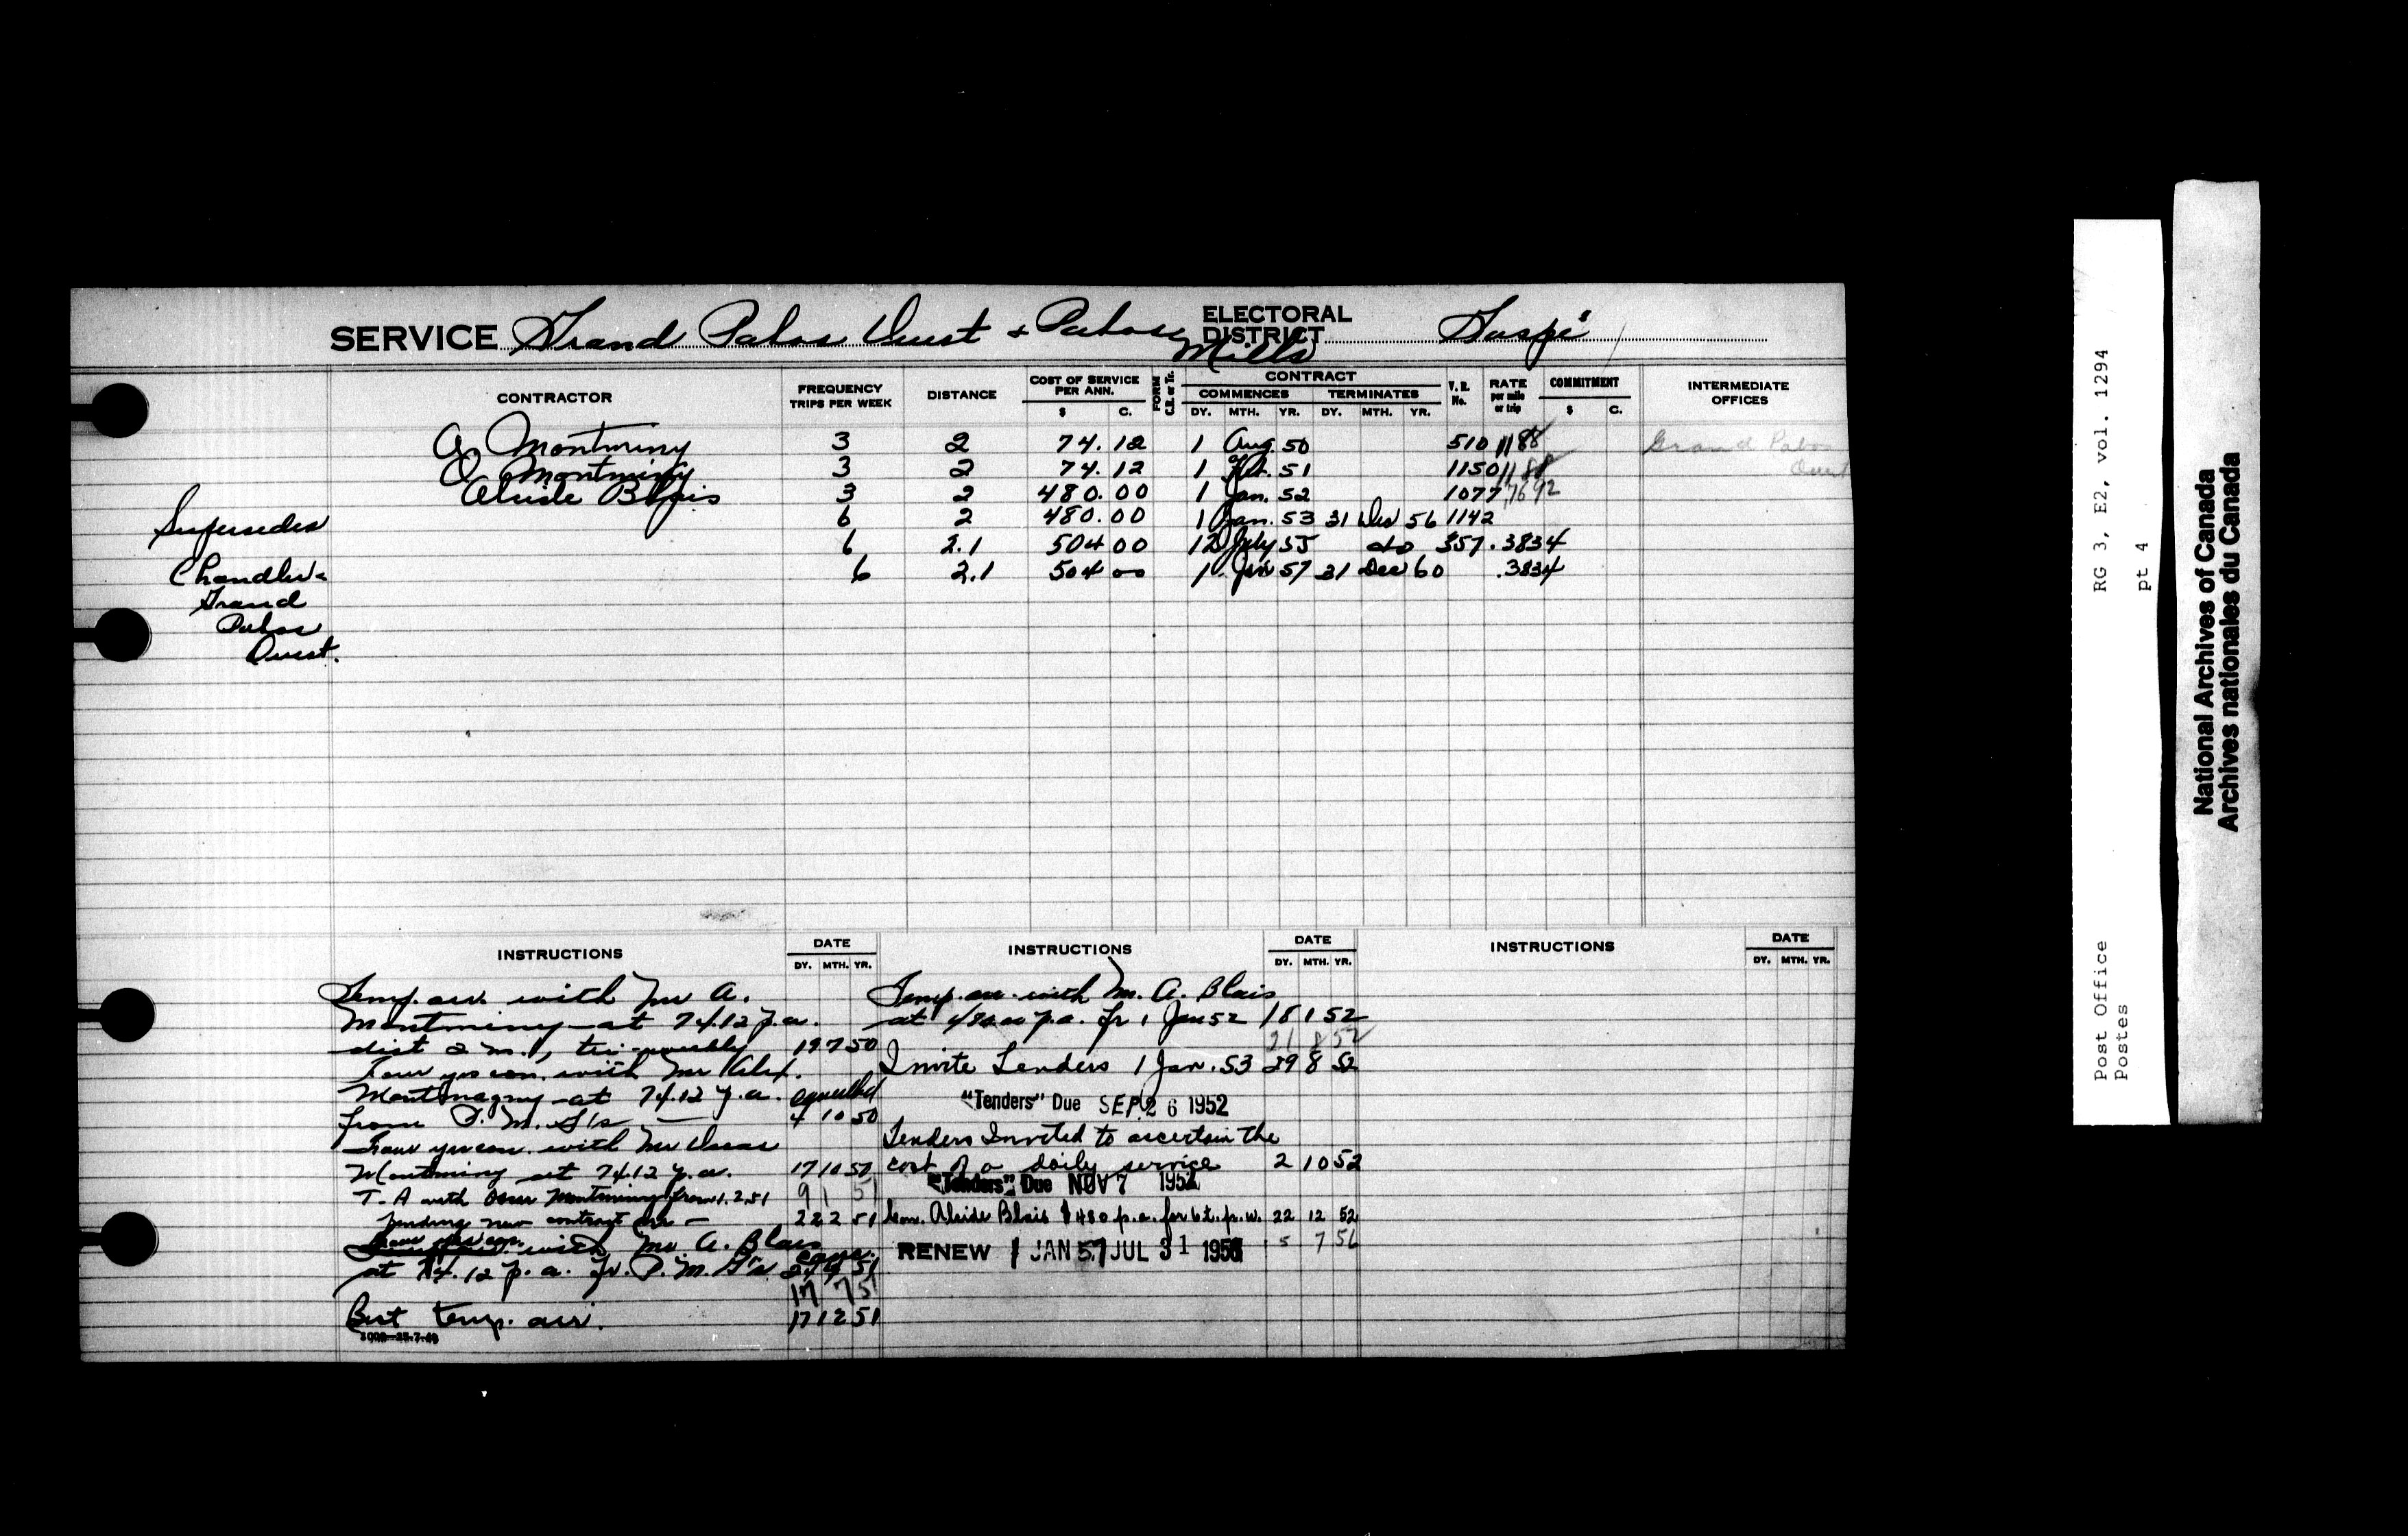 SERVICE Grand Pabos Ouest & Pabos Mills ELECTORAL DISTRICT Gaspé
CONTRACTOR FREQUENCY TRIPS PER WEEK DISTANCE COST OF SERVICE PER ANN. $ C. FORM C.R. or Tr. CONTRACT COMMENCES DY. MTH. YR. TERMINATES DY. MTH. YR. V.R. No. RATE per mile or trip COMMITMENT $ C. INTERMEDIATE OFFICES
A Montminy 3 2 74.12 1 Aug. 50 510 1188 Grand Pabos
O Montminy 3 2 74.12 1 Feb. 51 1150 1188 Ouest
Alcide Blais 3 2 480.00 1 Jan. 52 1077 7692
Supersedes 6 2 480.00 1 Jan. 53 31 Dec 56 1142
6 2.1 504 00 12 July 55 do 357 .3834
Chandler & 6 2.1 504 00 1 Jan 57 31 Dec 60 .3834
Grand
Pabos
Ouest.
INSTRUCTIONS DATE DY. MTH. YR. INSTRUCTIONS DATE DY. MTH. YR. INSTRUCTIONS DATE DY. MTH. YR.
Temp. arr. with Mr A.
Montminy at 74.12 p.a.
dist 2 m., tri-weekly 19 7 50
Four yrs con. with Mr Alex.
Montmagny at 74.12 p.a. cancelled
from P.M.G's 4 10 50
Four yrs con. with Mr Oscar
Montminy at 74.12 p.a. 17 10 50
T. A with Oscar Montminy from 1.2.51 9 1 51
pending new contract arr - 22 2 51
Four yrs con. with Mr A. Blais
at 74.12 p.a. fr. P.M.G's canc.
17 7 51
Best temp. arr. 17 12 51
Temp. arr. with M. A. Blais
at 480.00 p.a. fr 1 Jan 52 18 1 52
21 8 52
Invite Tenders 1 Jan. 53 29 8 52
"Tenders" Due SEP 26 1952
Tenders Invited to ascertain the
cost of a daily service 2 10 52
"Tenders" Due NOV 7 1952
Con. Alcide Blais $480 p.a. for 6 t. p. w. 22 12 52
RENEW 1 JAN 57 JUL 31 1956 5 7 56
RG 3, E2, vol. 1294
pt 4
Post Office
Postes
National Archives of Canada
Archives nationales du Canada